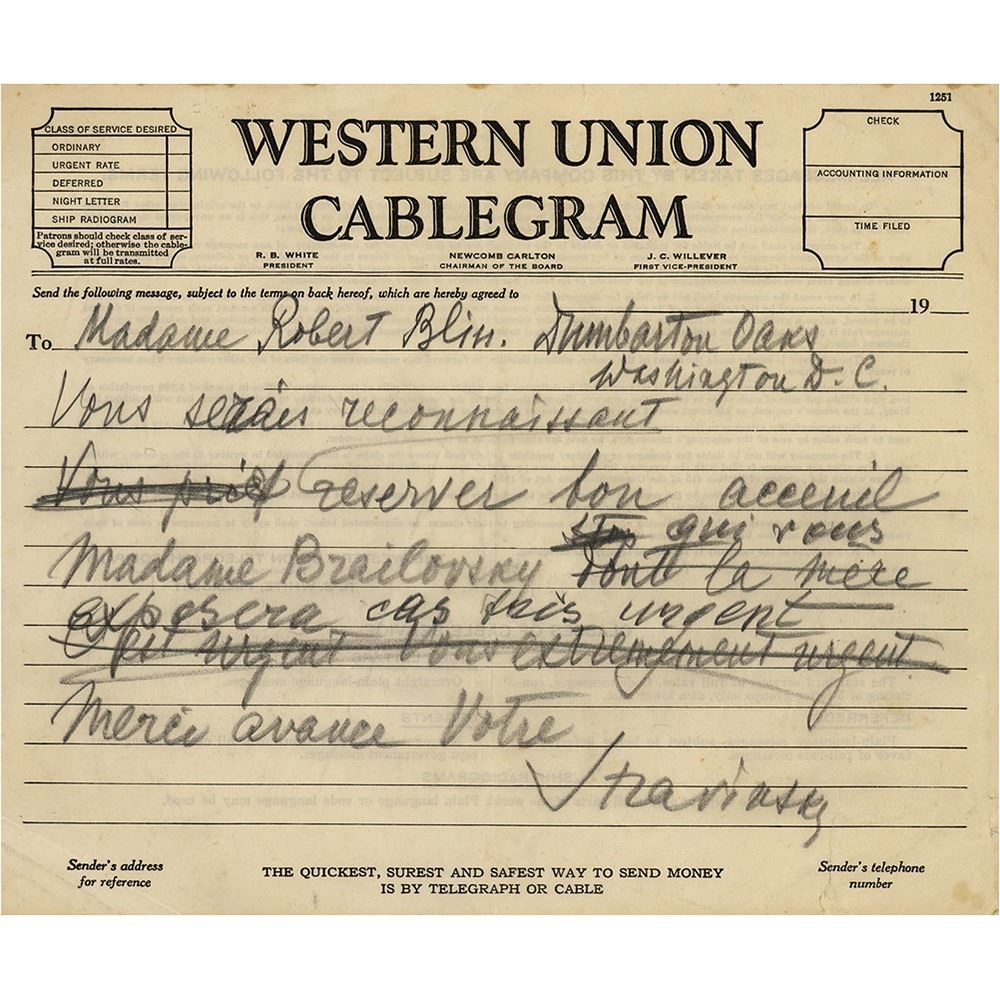 1251
CLASS OF SERVICE DESIRED
ORDINARY
URGENT RATE
DEFERRED
NIGHT LETTER
SHIP RADIOGRAM
Patrons should check class of ser-
vice desired; otherwise the cable-
gram will be transmitted
at full rates.
WESTERN UNION
CABLEGRAM
R. B. WHITE
PRESIDENT
NEWCOMB CARLTON
CHAIRMAN OF THE BOARD
J. C. WILLEVER
FIRST VICE-PRESIDENT
CHECK
ACCOUNTING INFORMATION
TIME FILED
Send the following message, subject to the terms on back hereof, which are hereby agreed to
19
To Madame Robert Blin. Dumbarton Oaks
Washington D. C.
Vous serais reconnaissant
Vous prie reserver bon acceuil
qui vous
Madame Brailovsky dont la mère
exposera cas très urgent
est urgent Vous extremement urgent
Merci avance Votre
Stravinsky
Sender's address
for reference
THE QUICKEST, SUREST AND SAFEST WAY TO SEND MONEY
IS BY TELEGRAPH OR CABLE
Sender's telephone
number